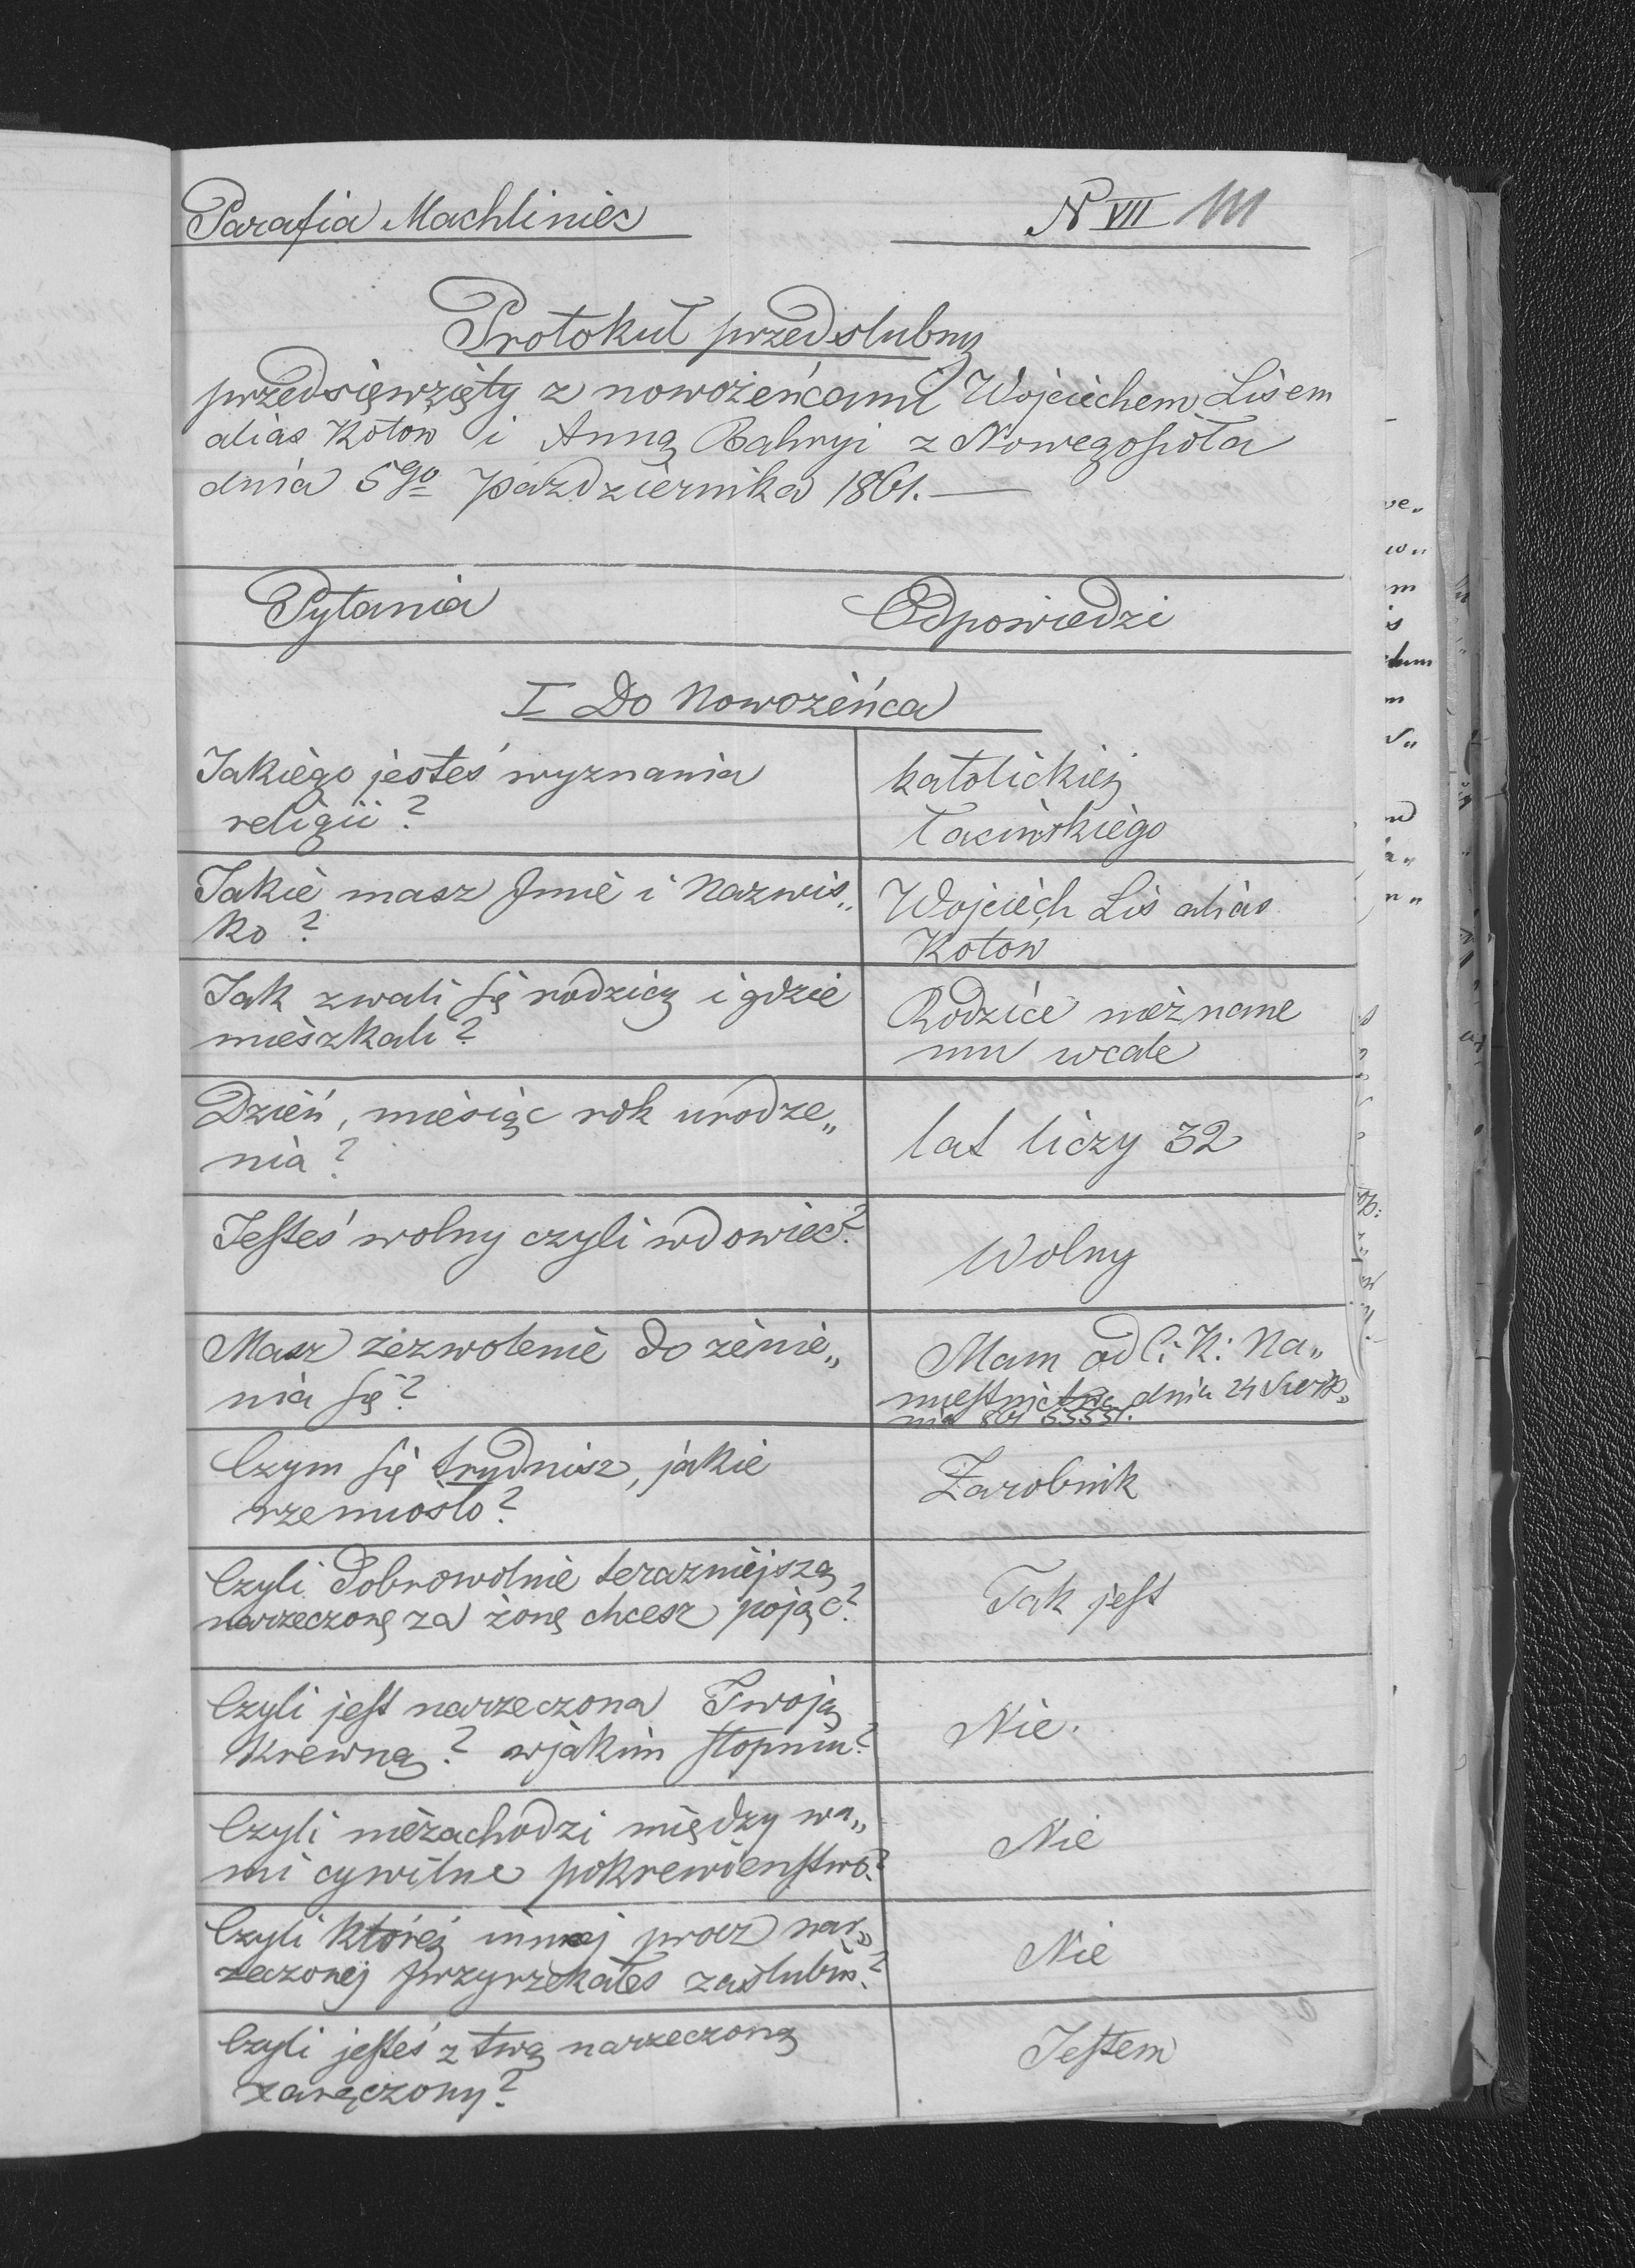 Parafia Machliniec
N VII 111
Protokuł przedslubny
przedsięwzięty z nowożeńcami Wojciechem Lisem
alias Kotow i Anną Bahryi z Nowegosioła
dnia 5go października 1861.
Pytania
Odpowiedzi
I Do Nowożeńca
Jakiego jesteś wyznania
religii?
katolickiej
łacińskiego
Jakie masz Jmie i Nazwis„
ko?
Wojciech Lis alias
Kotow
Jak zwali się rodzicy i gdzie
mieszkali?
Rodzice nieznane
mu wcale
Dzień, miesiąc rok urodze„
nia?
lat liczy 32
Jesteś wolny czyli wdowiec?
Wolny
Masz zezwolenie do żenie„
nia się?
Mam od C: K: Na„
miestnictwa dnia 24 Sierp„
nia 861
Czym się trudnisz, jakie
rzemiosło?
Zarobnik
Czyli dobrowolnie terazniejszą
narzeczonę za żonę chcesz pojąć?
Tak jest
Czyli jest narzeczona Twoją
Krewną? w jakim stopniu?
Nie.
Czyli niezachodzi między wa„
mi cywilne pokrewieństwo?
Nie
Czyli której innej procz nar„
zeczonej przyrzekałes zaślubin?
Nie
Czyli jesteś z twą narzeczoną
zaręczony?
Jestem